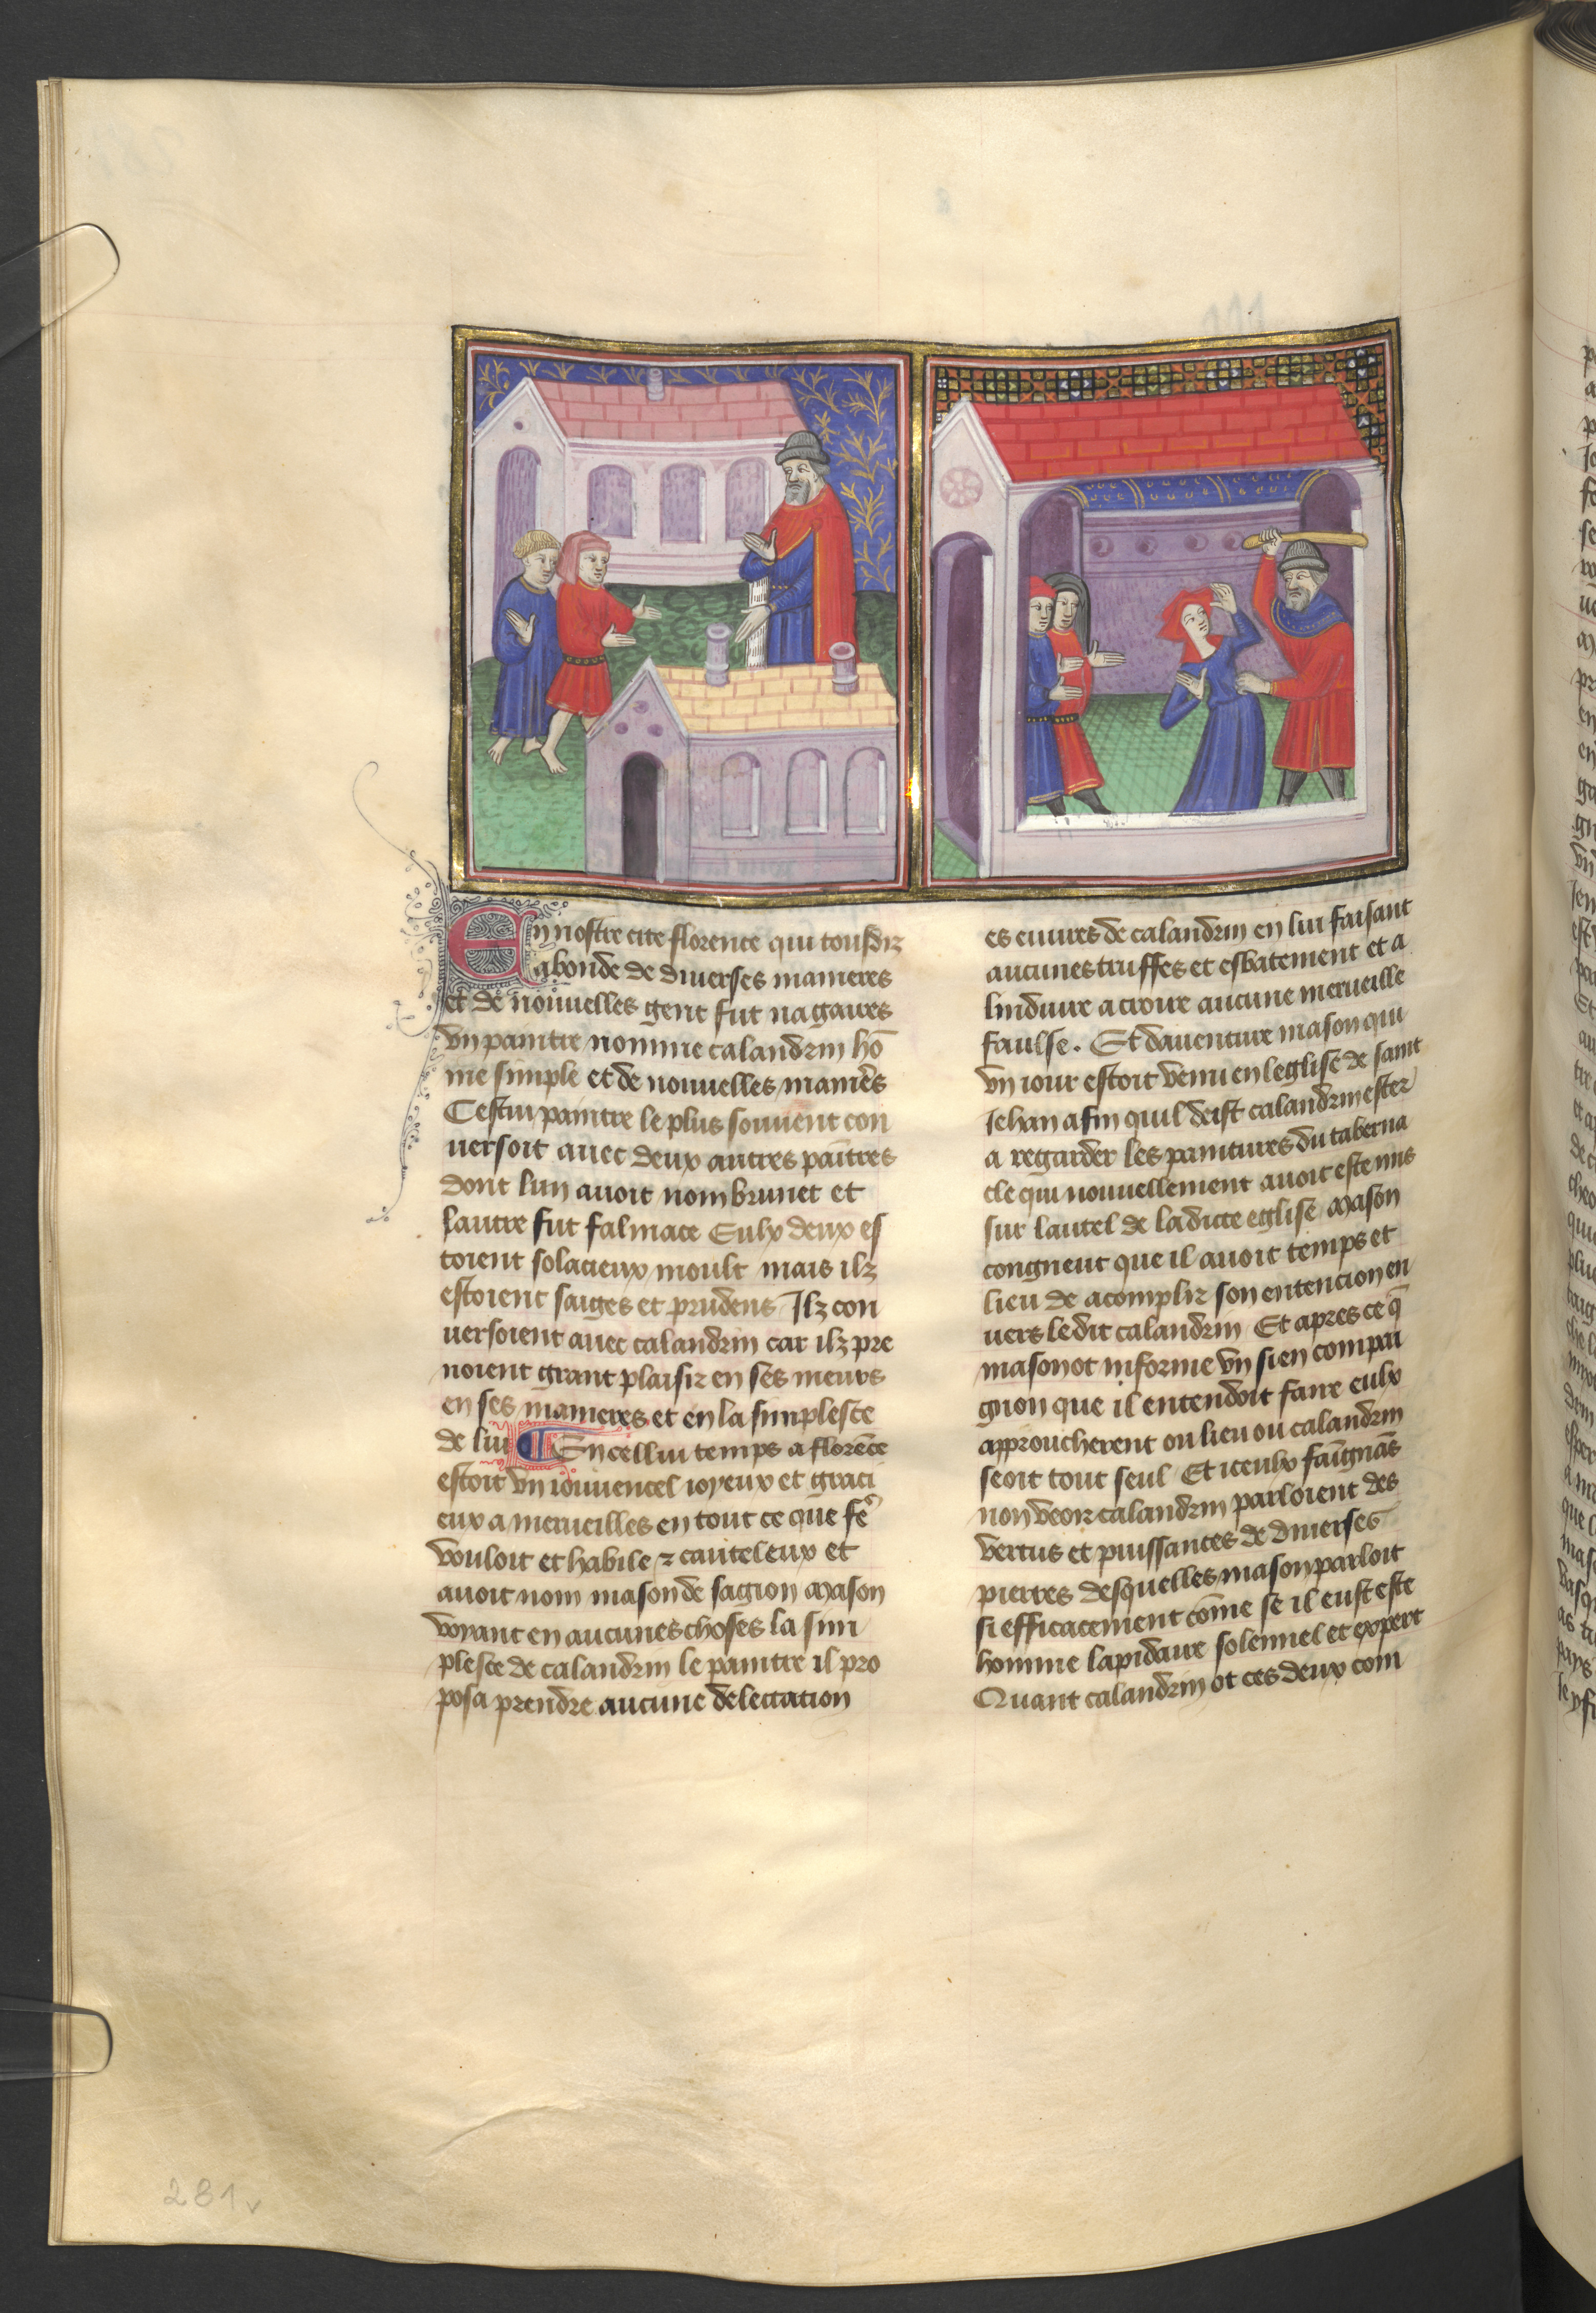 En nostre cite florence qui tousdiz
abonde de diuerses manieres
et de nouuelles gent fut nagaires
vn paintre nomme calandrin hō
me simple et de nouuelles manieres
Cestui paintre le plus souuent con
uersoit auec deux autres paītres
dont lun auoit nom brunet et
lautre fut falmace Eulx deux es
toient solacieux moult mais ilz
estoient saiges et prudens Ilz con
uersoient auec calandrin car ilz pre
noient grant plaisir en ses meurs
en ses manieres et en la simplesce
de lui En cellui temps a florēce
estoit vn iouuencel ioyeux et graci
eux a merueilles en tout ce que fe᷑
vouloit et habile ⁊ cauteleux et
auoit nom mason de sagion Mason
voyant en aucunes choses la sim
plesce de calandrin le paintre il pro
posa prendre aucune delectation
es euures de calandrin en lui faisant
aucunes truffes et esbatement et a
linduire a croire aucune merueille
faulse. Et dauenture mason qui
vn iour estoit venu en leglise de saint
Jehan afin quil deist calandrin ester
a regarder les paintures du taberna
cle qui nouuellement auoit este mis
sur lautel de ladicte eglise Mason
congneut que il auoit temps et
lieu de acomplir son entencion en
uers ledit calandrin Et apres ce q̄
mason ot informe vn sien compai
gnon que il entendoit faire eulx
approucherent ou lieu ou calandrin
seoit tout seul Et iceulx faīgnās
non veoir calandrin parloient des
vertus et puissances de diuerses
pierres desquelles mason parloit
si efficacement cōme se il eust este
homme lapidaire solennel et expert
Quant calandrin ot ces deux com
281v